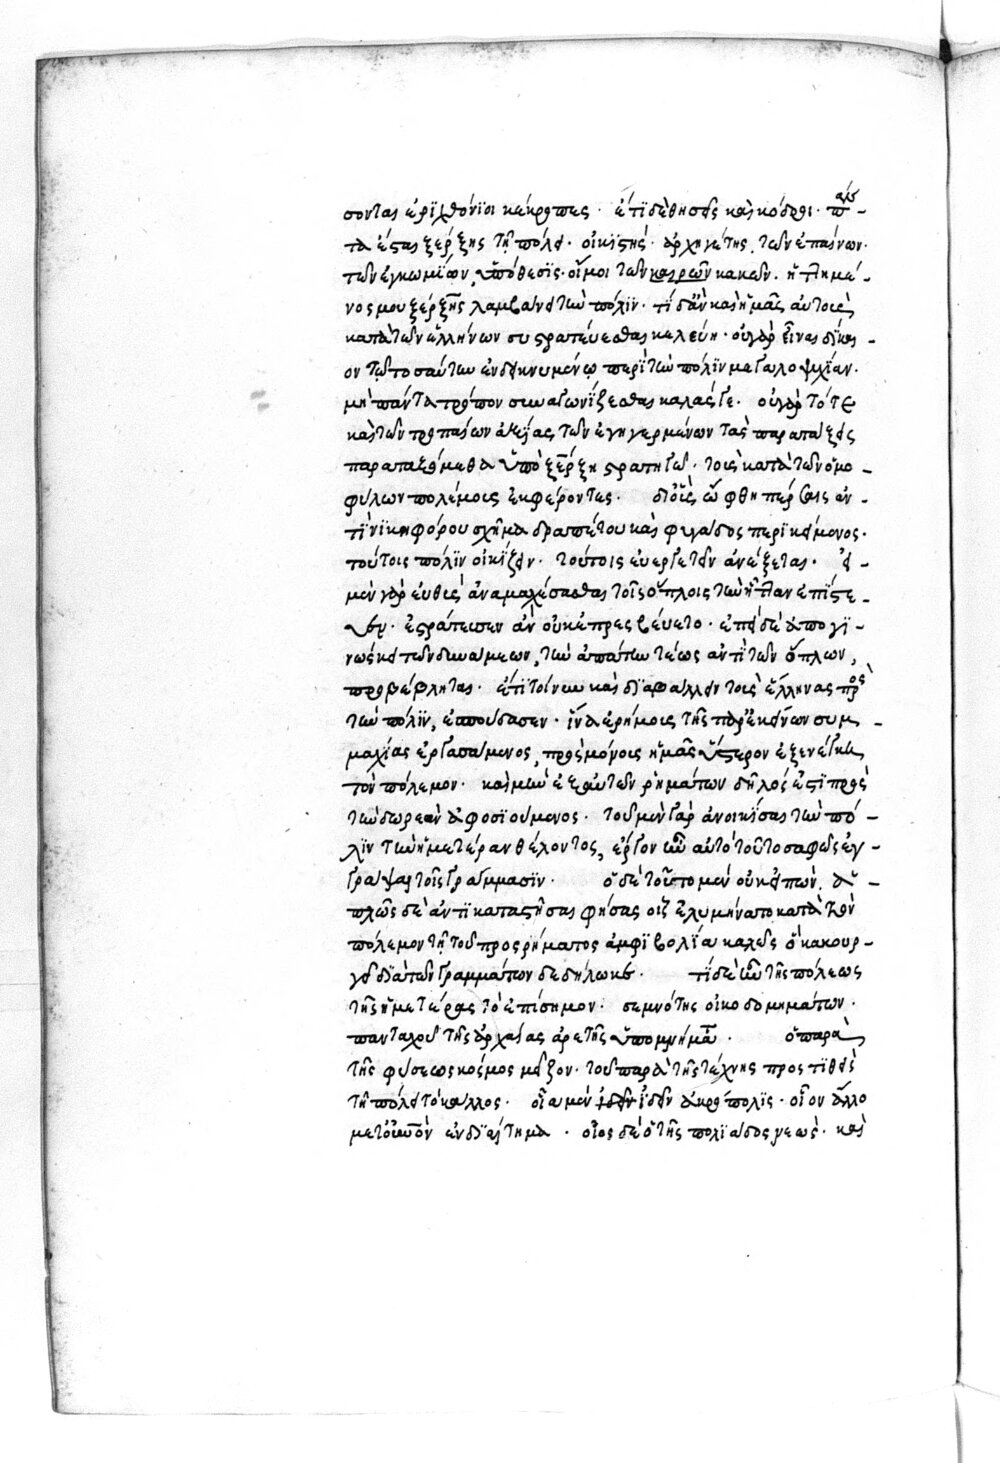 σονται ἐριχθόνιοι κέκροπες · ἔτι δὲ θησεῖς καὶ κόδροι ·
τα ἔσται ξέρξης τῇ πόλει · οἰκιστὴς · ἀρχηγέτης, τῶν ἐπαίνων ·
τῶν ἐγκωμίων, ὑπόθεσις · οἴμοι τῶν καιρῶν κακῶν · ἡττημέ-
νος μου ξέρξης λαμβάνει τὴν πόλιν · τί δ' ἂν καὶ ἡμᾶς αὐτοὺς
κατὰ τῶν ἑλλήνων συστρατεύεσθαι κελεύῃ · οὐ γὰρ εἶναι δίκαι-
ον τῷ τοσαύτην ἐνδεικνυμένῳ περὶ τὴν πόλιν μεγαλοψυχίαν ·
μὴ πάντα τρόπον συναγωνίζεσθαι καλάς γε · οὐ γὰρ τότε
καὶ τῶν τροπαίων ἀξίας τῶν ἐγηγερμένων τὰς παρατάξεις
παραταξόμεθα ὑπὸ ξέρξῃ στρατηγῷ · τοὺς κατὰ τῶν ὁμο-
φύλων πολέμους ἐκφέροντες · διὸ οἷς ὤφθη πέρσαις ἀν-
τὶ νικηφόρου σχῆμα δραπέτου καὶ φυγάδος περικείμενος ·
τούτοις πόλιν οἰκίζειν · τούτοις εὐεργετεῖν ἀνέξεται · εἰ
μὲν γὰρ εὐθὺς ἀναμαχέσασθαι τοῖς ὅπλοις τὴν ἧτταν ἐπίστε-
υεν · ἐστράτευσεν ἂν οὐκ ἐπρεσβεύετο · ἐπεὶ δὲ ἀπογι-
νώσκει τῶν δυνάμεων, τὴν ἀπάτην τέως ἀντὶ τῶν ὅπλων,
προβέβληται · ἔτι τοίνυν καὶ διαβάλλειν τοὺς ἕλληνας πρὸς
τὴν πόλιν, ἐσπούδασεν · ἵνα ἐρήμους τῆς παρ' ἐκείνων συμ-
μαχίας ἐργασάμενος, πρὸς μόνους ἡμᾶς ὕστερον ἐξενέγκῃ
τὸν πόλεμον · καὶ μὴν ἐξ αὐτῶν ῥημάτων δῆλός ἐστι πρὸς
τὴν δωρεὰν ἀφοσιούμενος · τοῦ μὲν γὰρ ἀνοικίσαι τὴν πό-
λιν τὴν ἡμετέραν θέλοντος, ἔργον ἦν αὐτὸ τοῦτο σαφῶς ἐγ-
γράψαι τοῖς γράμμασιν · ὁ δὲ τοῦτο μὲν οὐκ εἰπών, ἁ-
πλῶς δὲ ἀντικαταστῆσαι φήσας οἷς ἐλυμήνατο κατὰ τὸν
πόλεμον τῇ τοῦ προσρήματος ἀμφιβολίᾳ καλῶς ὁ κακοῦρ-
γος διὰ τῶν γραμμάτων δεδήλωκε · τί δὲ ἦν τῆς πόλεως
τῆς ἡμετέρας τὸ ἐπίσημον · σεμνότης οἰκοδομημάτων ·
πανταχοῦ τῆς ἀρχαίας ἀρετῆς ὑπομνήματα · ὁ παρὰ
τῆς φύσεως κόσμος μεῖζον · τοῦ παρὰ τῆς τέχνης προστιθεὶς
τῇ πόλει τὸ κάλλος · οἵα μὲν ἰδεῖν ἀκρόπολις · οἷον ἄλλο
μετοὐρανὸν ἐνδιαίτημα · οἷος δὲ ὁ τῆς πολιάδος νεὼς · καὶ